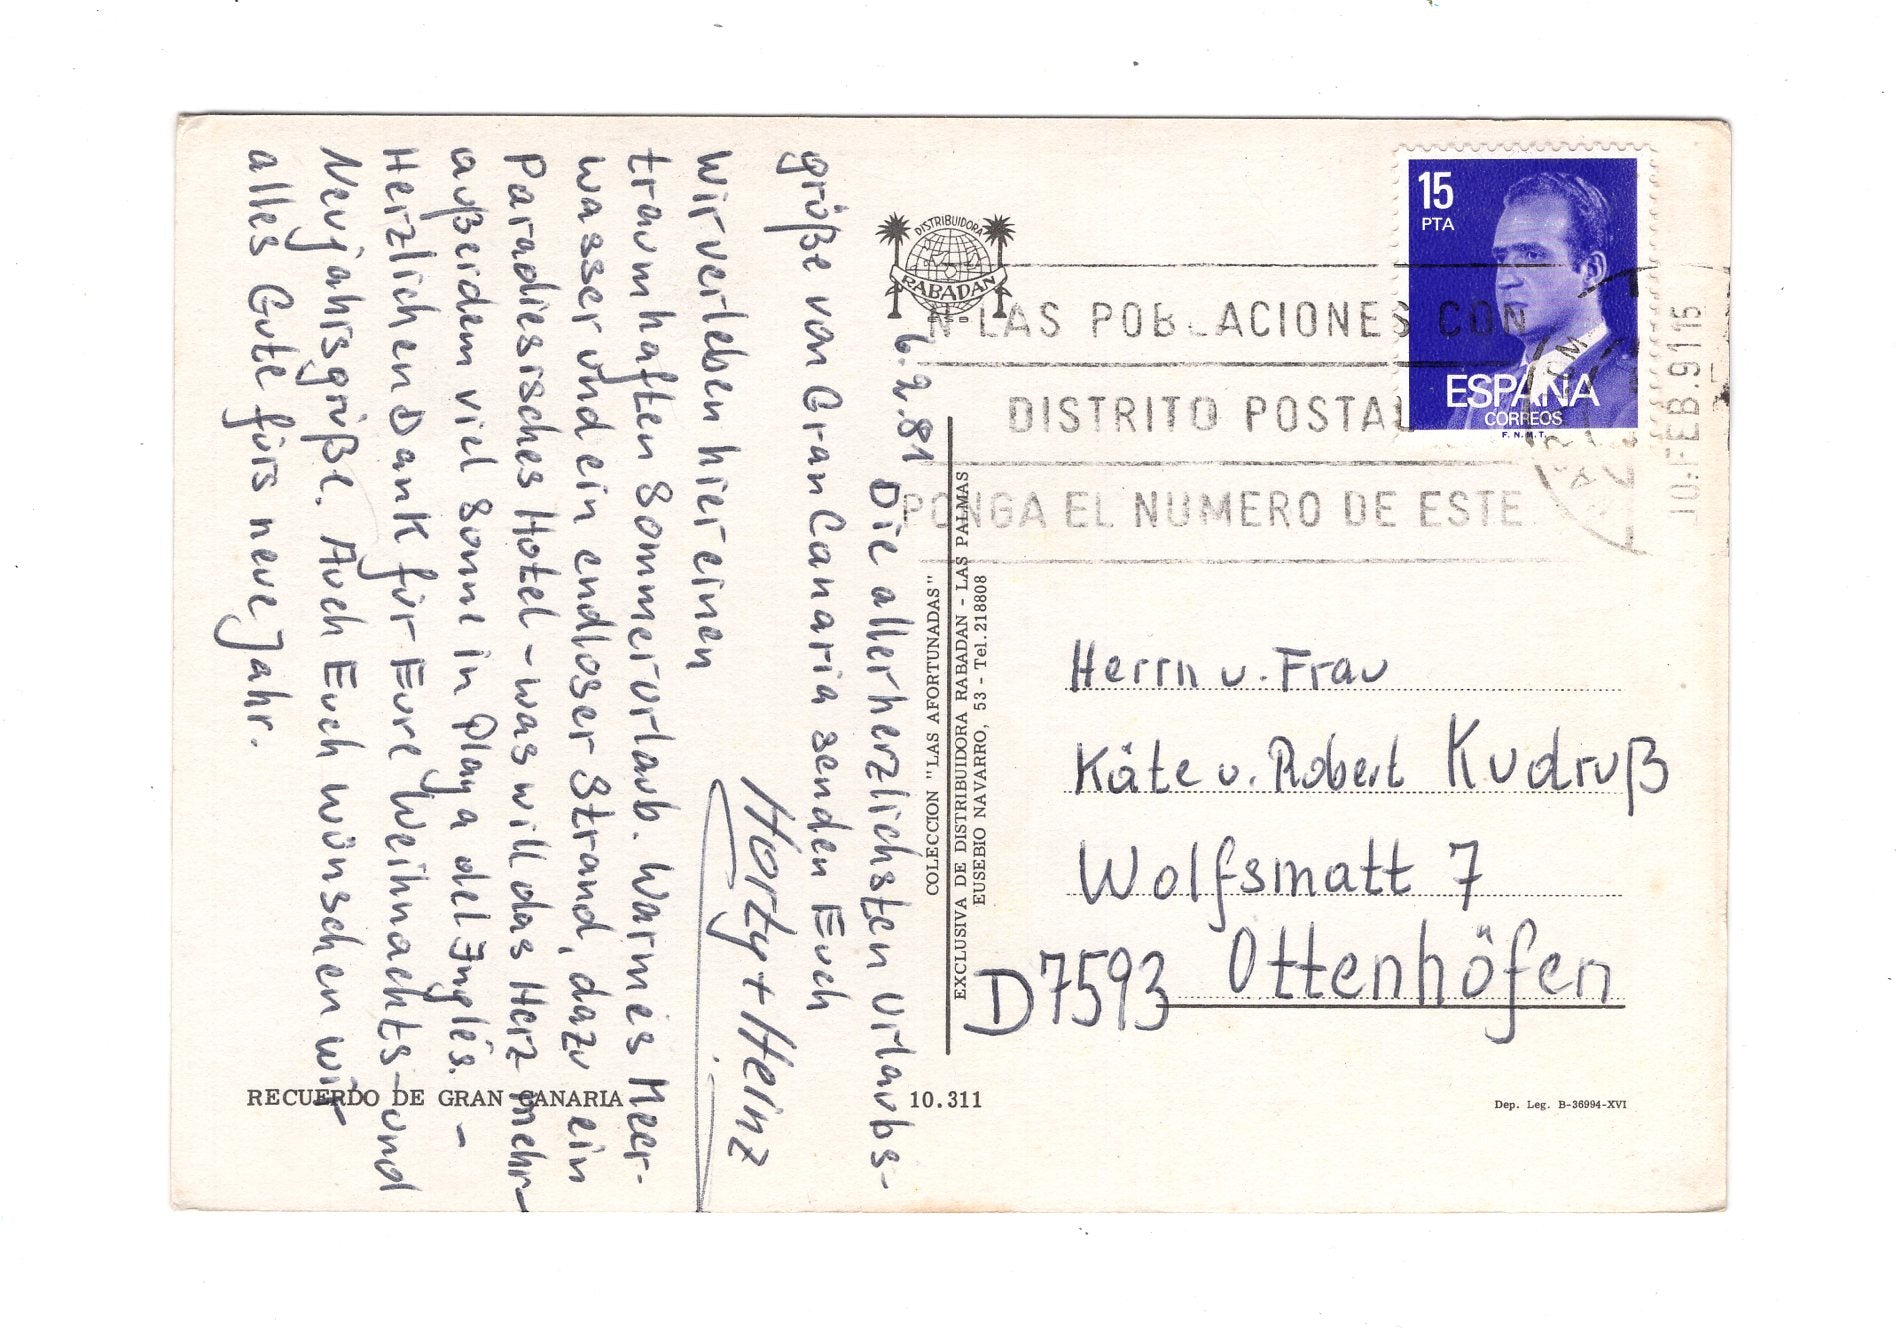 6.2.81
Die allerherzlichsten Urlaubs-
grüße von Gran Canaria senden Euch
Horty + Heinz
Wir verleben hier einen
traumhaften Sommerurlaub. Warmes Meer-
wasser und ein endloser Strand, dazu ein
Paradiesisches Hotel - was will das Herz mehr -
außerdem viel Sonne in Playa del Inglés. -
Herzlichen Dank für Eure Weihnachts- und
Neujahrsgrüße. Auch Euch wünschen wir
alles Gute fürs neue Jahr.
RECUERDO DE GRAN CANARIA
10.311
DISTRIBUIDORA
RABADAN
COLECCION "LAS AFORTUNADAS"
EXCLUSIVA DE DISTRIBUIDORA RABADAN - LAS PALMAS
EUSEBIO NAVARRO, 53 - Tel. 218808
15
PTA
ESPAÑA
CORREOS
F.N.M.T.
N LAS POBLACIONES CON
DISTRITO POSTAL
PONGA EL NUMERO DE ESTE
10.FEB.91 15
Herrn u. Frau
Käte u. Robert Kudruß
Wolfsmatt 7
D 7593 Ottenhöfen
Dep. Leg. B-36994-XVI